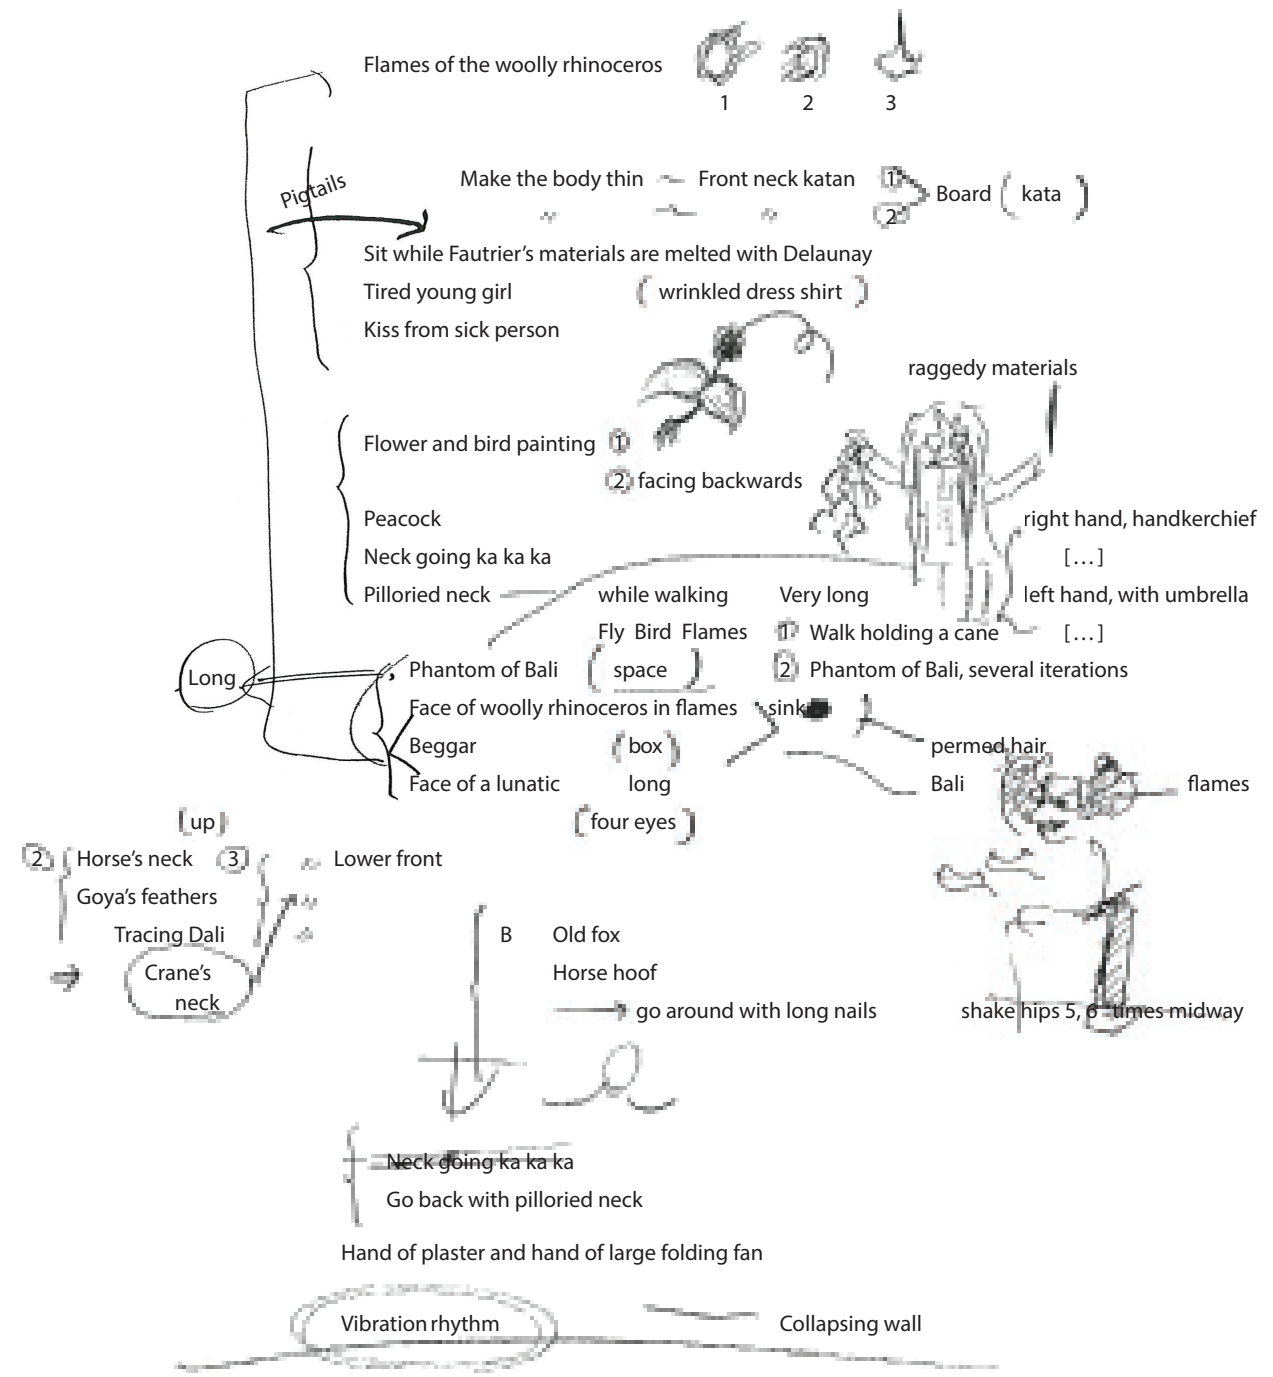 Flames of the woolly rhinoceros
1 2 3
Pigtails
Make the body thin ~ Front neck katan 1
〃 ~ 〃 2
Board ( kata )
Sit while Fautrier’s materials are melted with Delaunay
Tired young girl ( wrinkled dress shirt )
Kiss from sick person
raggedy materials
Flower and bird painting 1
2 facing backwards
Peacock
right hand, handkerchief
Neck going ka ka ka
[…]
Pilloried neck — while walking Very long
left hand, with umbrella
Fly Bird Flames 1 Walk holding a cane
[…]
Long
Phantom of Bali ( space ) 2 Phantom of Bali, several iterations
Face of woolly rhinoceros in flames sink
Beggar ( box ) permed hair
Face of a lunatic long Bali flames
( up ) ( four eyes )
2 Horse’s neck 3 〃 Lower front
Goya’s feathers 〃
Tracing Dali 〃
→ Crane’s
neck
B Old fox
Horse hoof
→ go around with long nails
shake hips 5, 6 times midway
Neck going ka ka ka
Go back with pilloried neck
Hand of plaster and hand of large folding fan
Vibration rhythm Collapsing wall